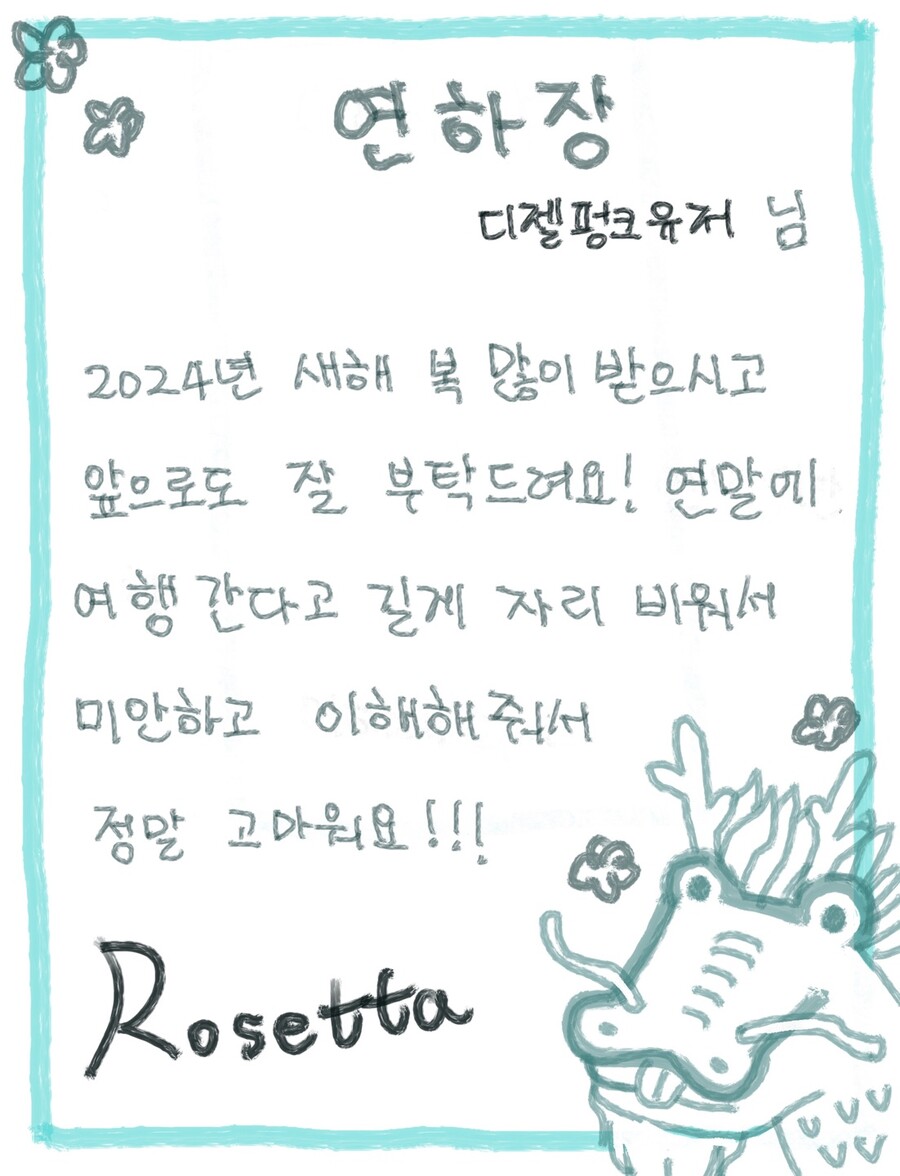 연하장
디젤펑크유저 님
2024년 새해 복 많이 받으시고
앞으로도 잘 부탁드려요! 연말에
여행 간다고 길게 자리 비워서
미안하고 이해해줘서
정말 고마워요!!!
Rosetta